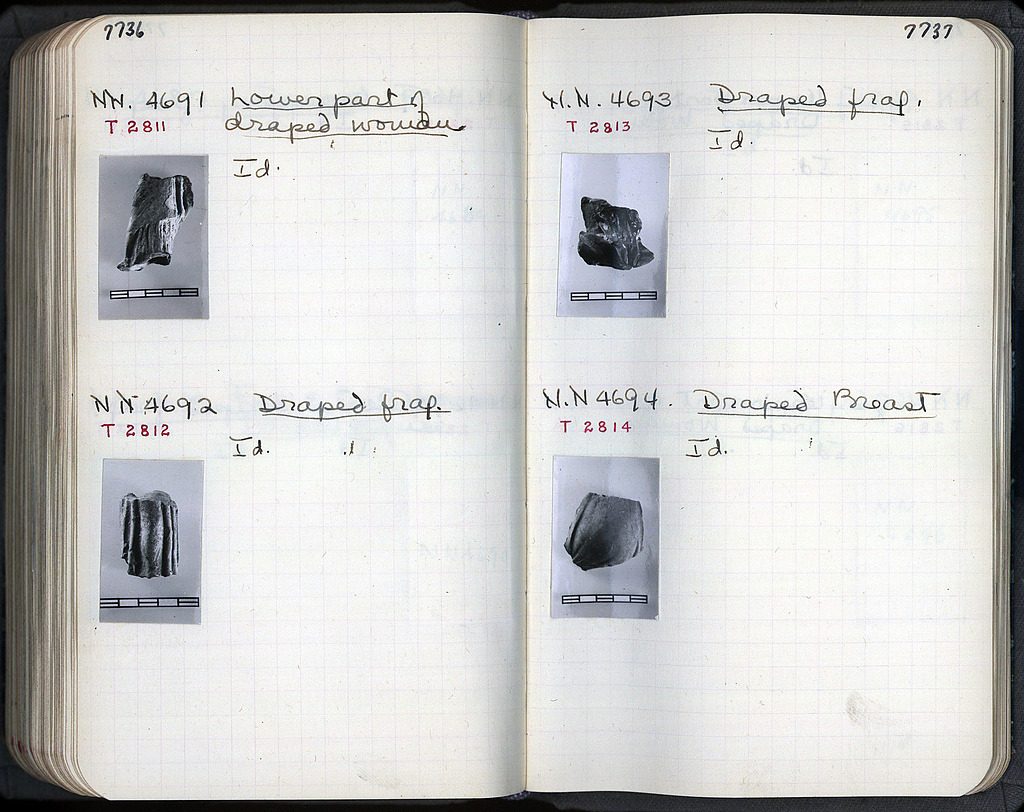 7736
NN. 4691 Lower part of
T 2811 draped woman
Id.
NN 4692 Draped frag.
T 2812
Id.
7737
N.N. 4693 Draped frag.
T 2813
Id.
N.N 4694. Draped Breast
T 2814
Id.